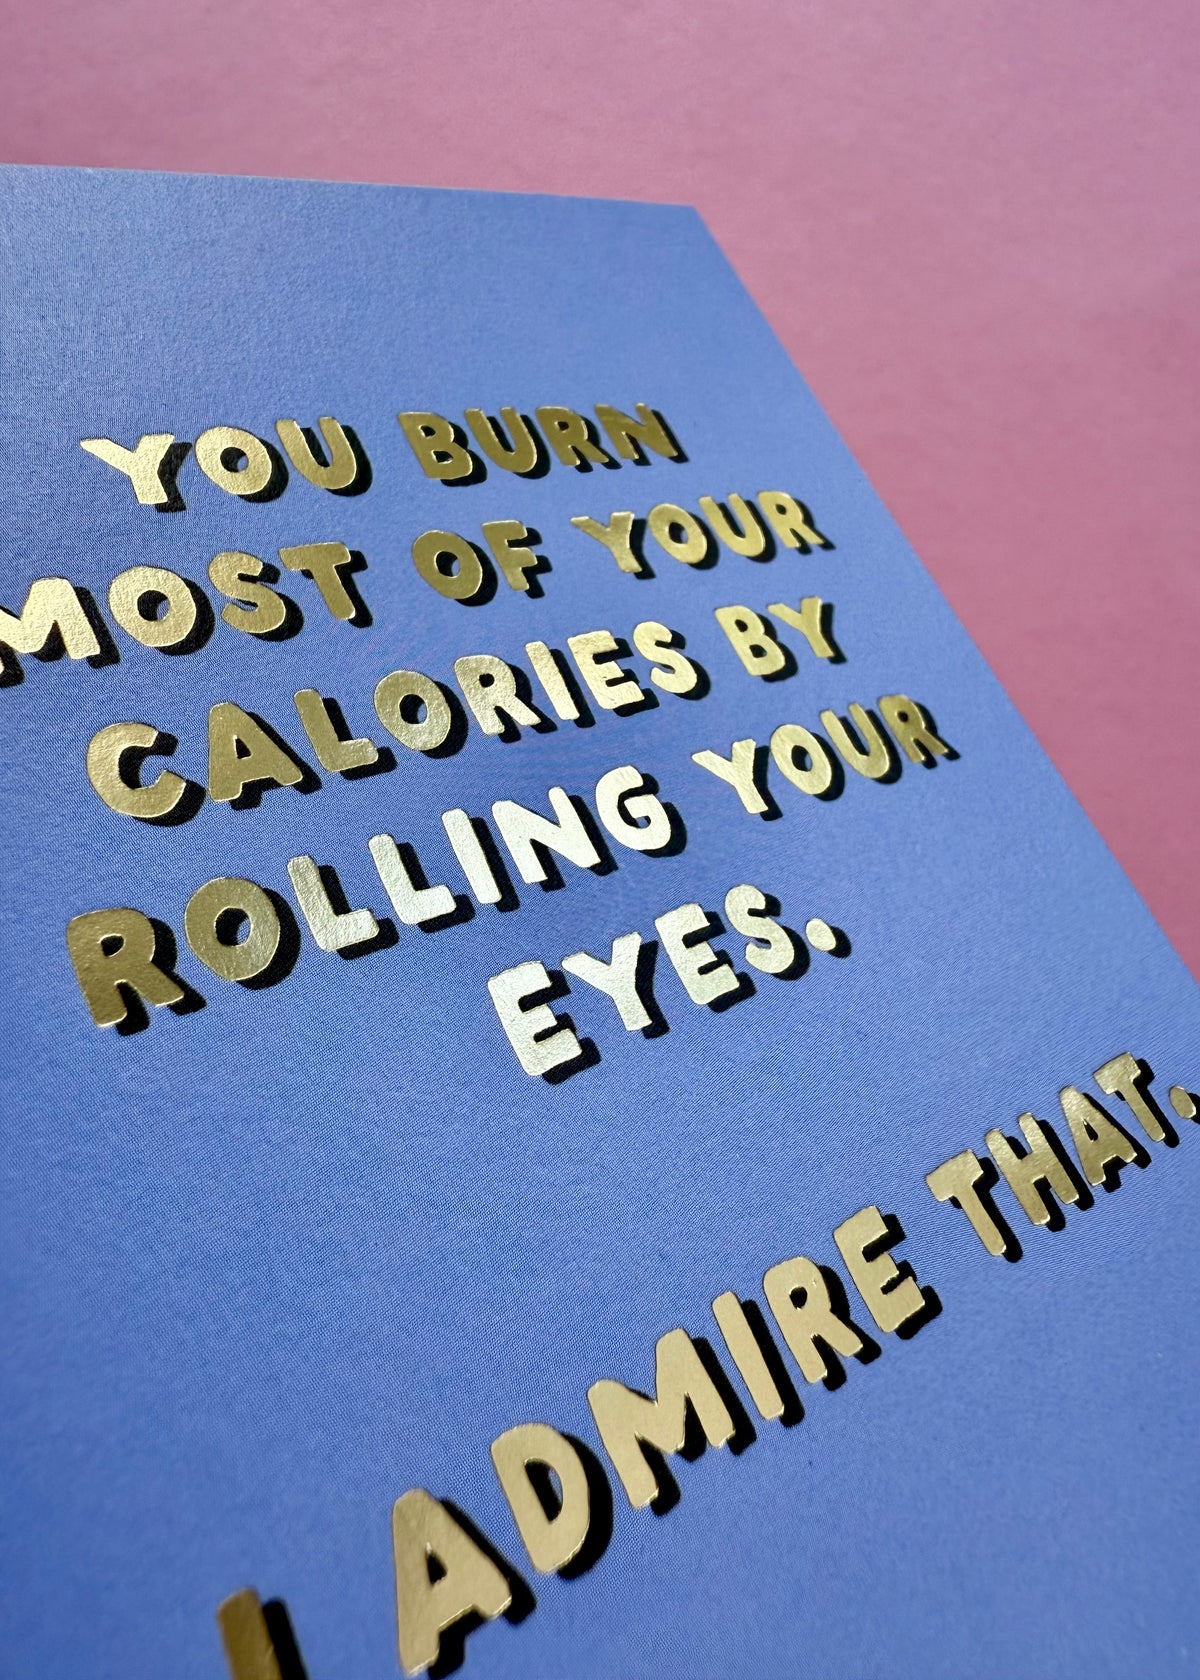 YOU BURN
MOST OF YOUR
CALORIES BY
ROLLING YOUR
EYES.
I ADMIRE THAT.